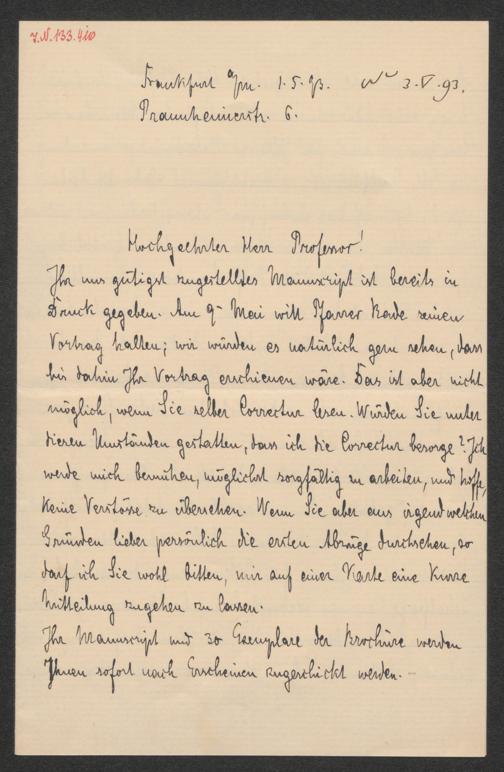 J.N. 133.410
Frankfurt a/m. 1.5.93. 3.V.93.
Praunheimerstr. 6.
Hochgeehrter Herr Professor!
Ihr uns gütigst zugestelltes Manuscript ist bereits in
Druck gegeben. Am 9. Mai will Pfarrer Rade seinen
Vortrag halten; wir würden es natürlich gern sehen, dass
bis dahin Ihr Vortrag erschienen wäre. Das ist aber nicht
möglich, wenn Sie selber Correctur lesen. Würden Sie unter
diesen Umständen gestatten, dass ich die Correctur besorge? Ich
werde mich bemühen, möglichst sorgfältig zu arbeiten, und hoffe,
keine Verstösse zu übersehen. Wenn Sie aber aus irgend welchen
Gründen lieber persönlich die ersten Abzüge durchsehen, so
darf ich Sie wohl bitten, mir auf einer Karte eine kurze
Mitteilung zugehen zu lassen.
Ihr Manuscript und 30 Exemplare der Brochüre werden
Ihnen sofort nach Erscheinen zugeschickt werden. –